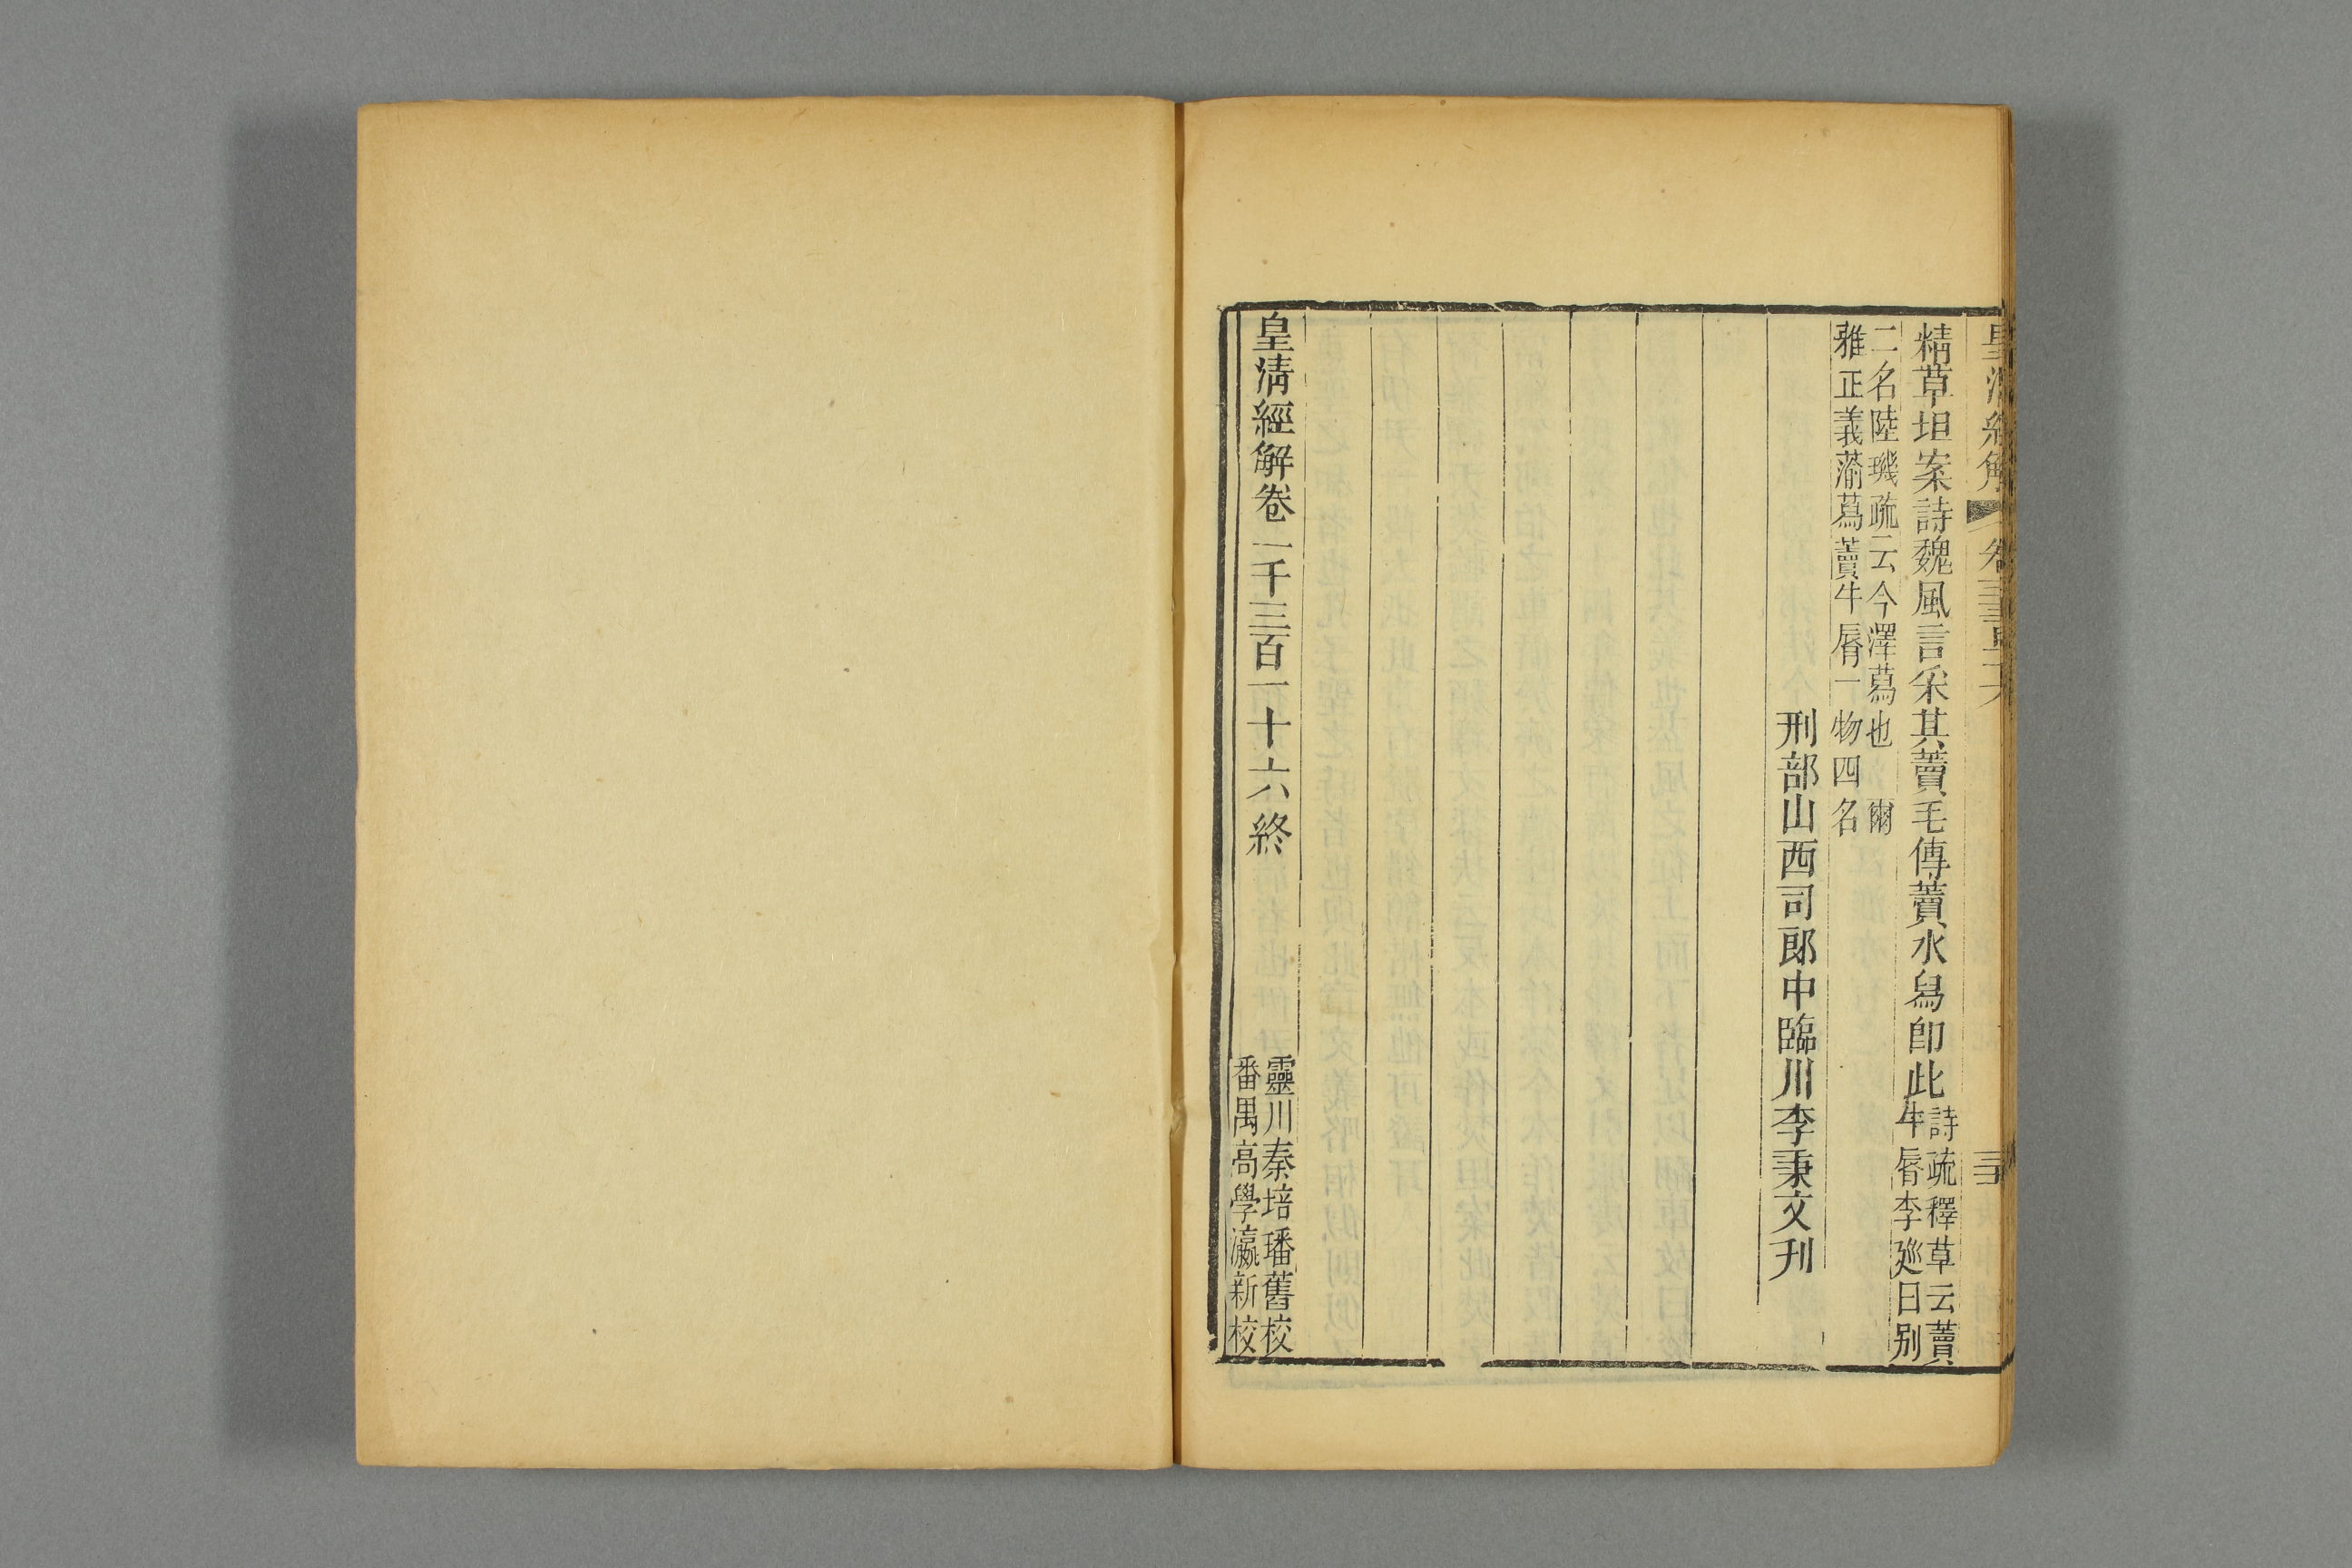 皇清經解
精草坦案詩魏風言采其藚毛傳藚水舄卽此
詩疏釋草云藚
牛脣李廵曰别
二名陸璣疏云今澤蕮也 爾
雅正義蕍蕮藚牛脣一物四名
刑部山西司郎中臨川李秉文刋
皇清經解卷一千三百一十六終
靈川秦培璠舊校
番禺高學瀛新校